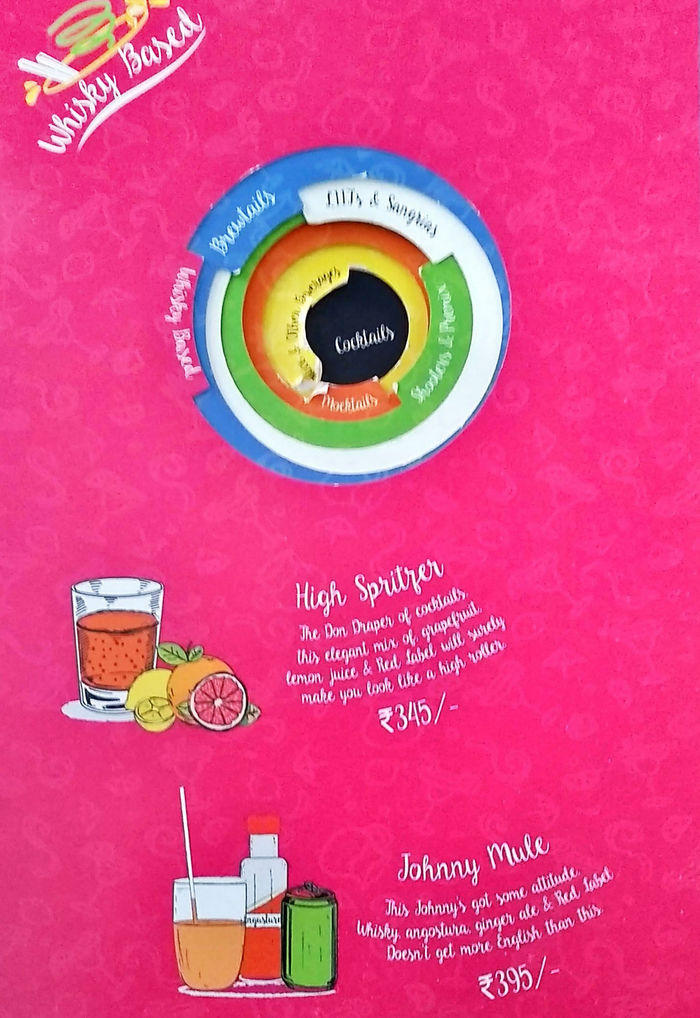 Whisky Based
Brewtails
LIITs & Sangrias
Whisky Based
& Other Beverages
Cocktails
Shooters & Phoenix
Mocktails
High Spritzer
The Don Draper of cocktails,
this elegant mix of grapefruit,
lemon juice & Red Label will surely
make you look like a high roller.
₹345/-
Johnny Mule
This Johnny's got some attitude.
Whisky, angostura, ginger ale & Red Label
Doesn't get more English than this.
₹395/-